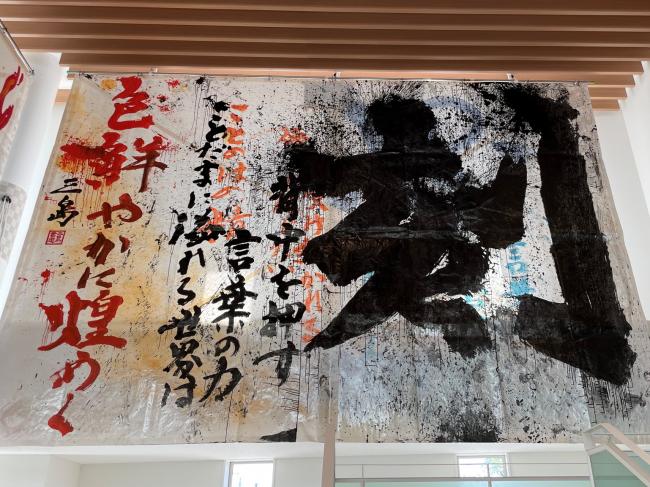 刻
背中を押す
言葉の力
ことのはの
ことたまに溢れる世界は
色鮮やかに煌めく
三島